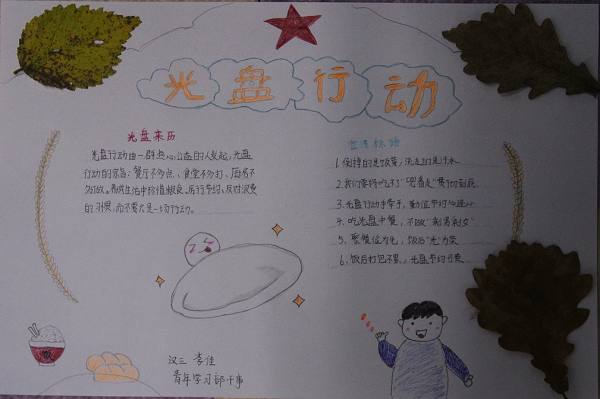 光盘行动
光盘来历
光盘行动由一群热心公益的人发起,光盘
行动的宗旨:餐厅不多点、食堂不多打、厨房不
多做。养成生活中珍惜粮食、厉行节约、反对浪费
的习惯,而不要只是一场行动。
宣传标语
1、倒掉的是饭菜,流走的是汗水
2、我们要将吃不了“兜着走”贯彻到底
3、光盘行动手牵手,勤俭节约心连心
4、吃光盘中餐,不做“剩男剩女”
5、聚餐俭为先,饭后“光”为荣
6、饭后打包不累,光盘节约可贵
汉三 李佳
青年学习部干事